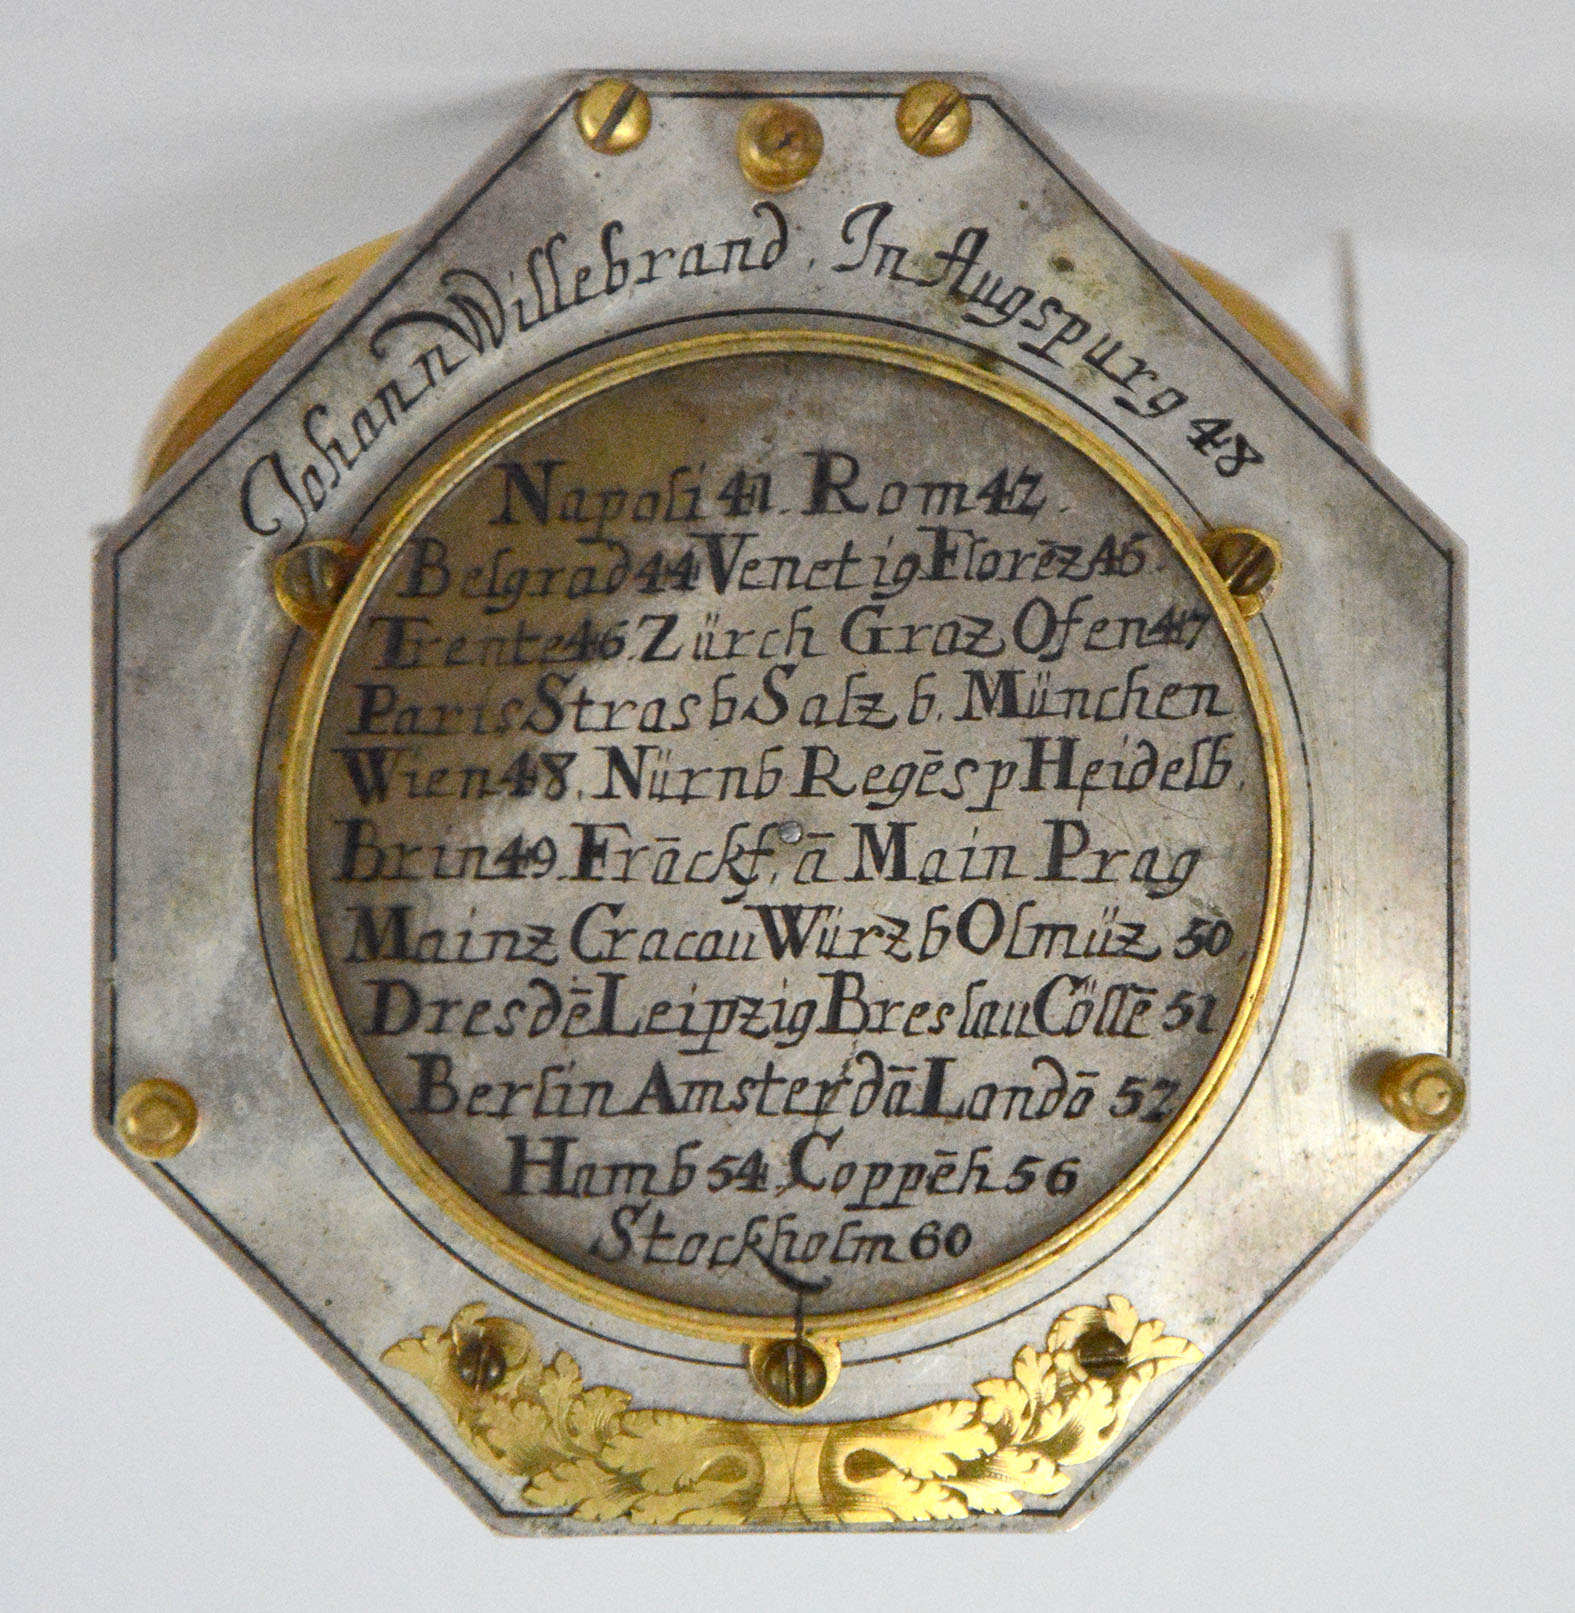 Johann Willebrand. In Augspurg 48
Napoli 41. Rom 42.
Belgrad 44 Venetig Florēz 45.
Trente 46. Zürch Graz Ofen 47
Paris Strasb Salzb. München
Wien 48. Nürnb Regēsp Heidelb.
Brin 49. Frāckf. ā Main Prag
Mainz Cracau Würzb Olmüz 50
Dresdē Leipzig Breslau Cöllē 51
Berlin Amsterdā Londō 52
Hamb 54. Coppēh 56
Stockholm 60